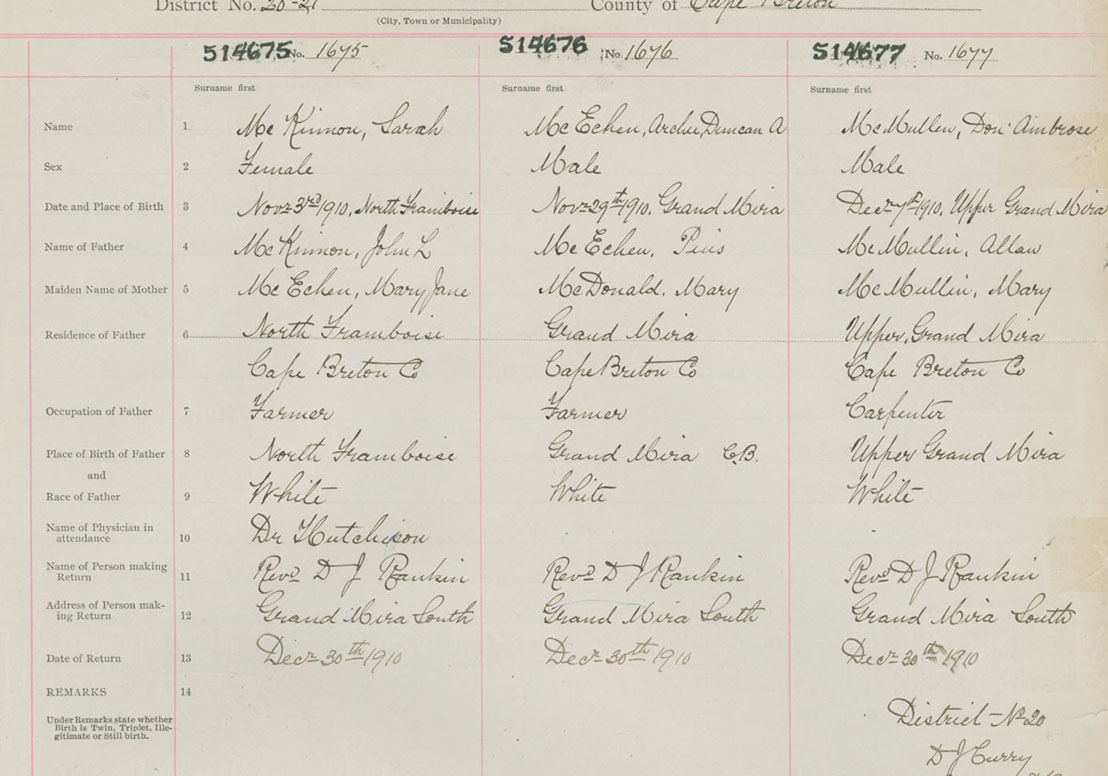 District No. 20-21 County of Cape Breton
(City, Town or Municipality)
514675 No. 1675 514676 No. 1676 514677 No. 1677
Surname first Surname first Surname first
Name 1 McKinnon, Sarah McEchen, Archie, Duncan A McMullen, Don Ambrose
Sex 2 Female Male Male
Date and Place of Birth 3 Novr 3rd 1910, North Framboise Novr 29th 1910, Grand Mira Decr 7th 1910, Upper Grand Mira
Name of Father 4 McKinnon, John L McEchen, Pius McMullin, Allan
Maiden Name of Mother 5 McEchen, Mary Jane McDonald, Mary McMullin, Mary
Residence of Father 6 North Framboise Grand Mira Upper, Grand Mira
Cape Breton Co Cape Breton Co Cape Breton Co
Occupation of Father 7 Farmer Farmer Carpenter
Place of Birth of Father 8 North Framboise Grand Mira C.B. Upper Grand Mira
and
Race of Father 9 White White White
Name of Physician in
attendance 10 Dr Hutchison
Name of Person making
Return 11 Revd D J Rankin Revd D J Rankin Revd D J Rankin
Address of Person mak-
ing Return 12 Grand Mira South Grand Mira South Grand Mira South
Date of Return 13 Decr 30th 1910 Decr 30th 1910 Decr 30th 1910
REMARKS 14
Under Remarks state whether
Birth is Twin, Triplet, Ille-
gitimate or Still birth.
District No 20
D J Curry